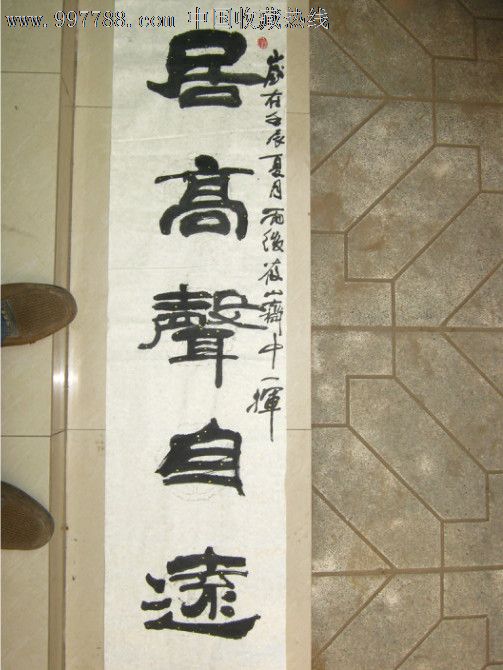 www.997788.com 中国收藏热线
居高聲自遠
歲在壬辰夏月雨後筱山齋中一揮